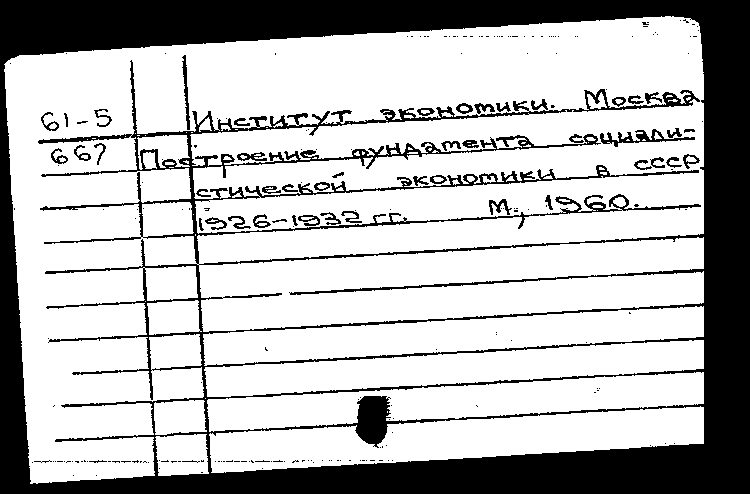 61-5 Институт экономики. Москва
667 Построение фундамента социали-
стической экономики в СССР
1926-1932 гг. М., 1960.